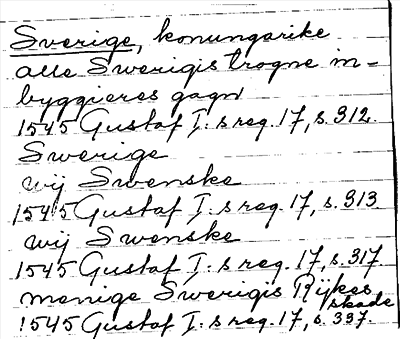 Sverige, konungarike
alle Swerigis trogne in-
byggieres gagn
1545 Gustaf I:s reg. 17, s. 312.
Swerige
wij Swenske
1545 Gustaf I:s reg. 17, s. 313
wij Swenske
1545 Gustaf I:s reg. 17, s. 317
menige Swerigis Rijkes
skade
1545 Gustaf I:s reg. 17, s. 337.